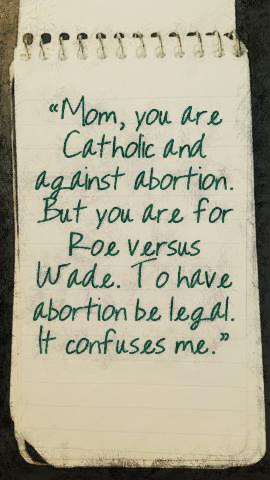 “Mom, you are
Catholic and
against abortion.
But you are for
Roe versus
Wade. To have
abortion be legal.
It confuses me.”